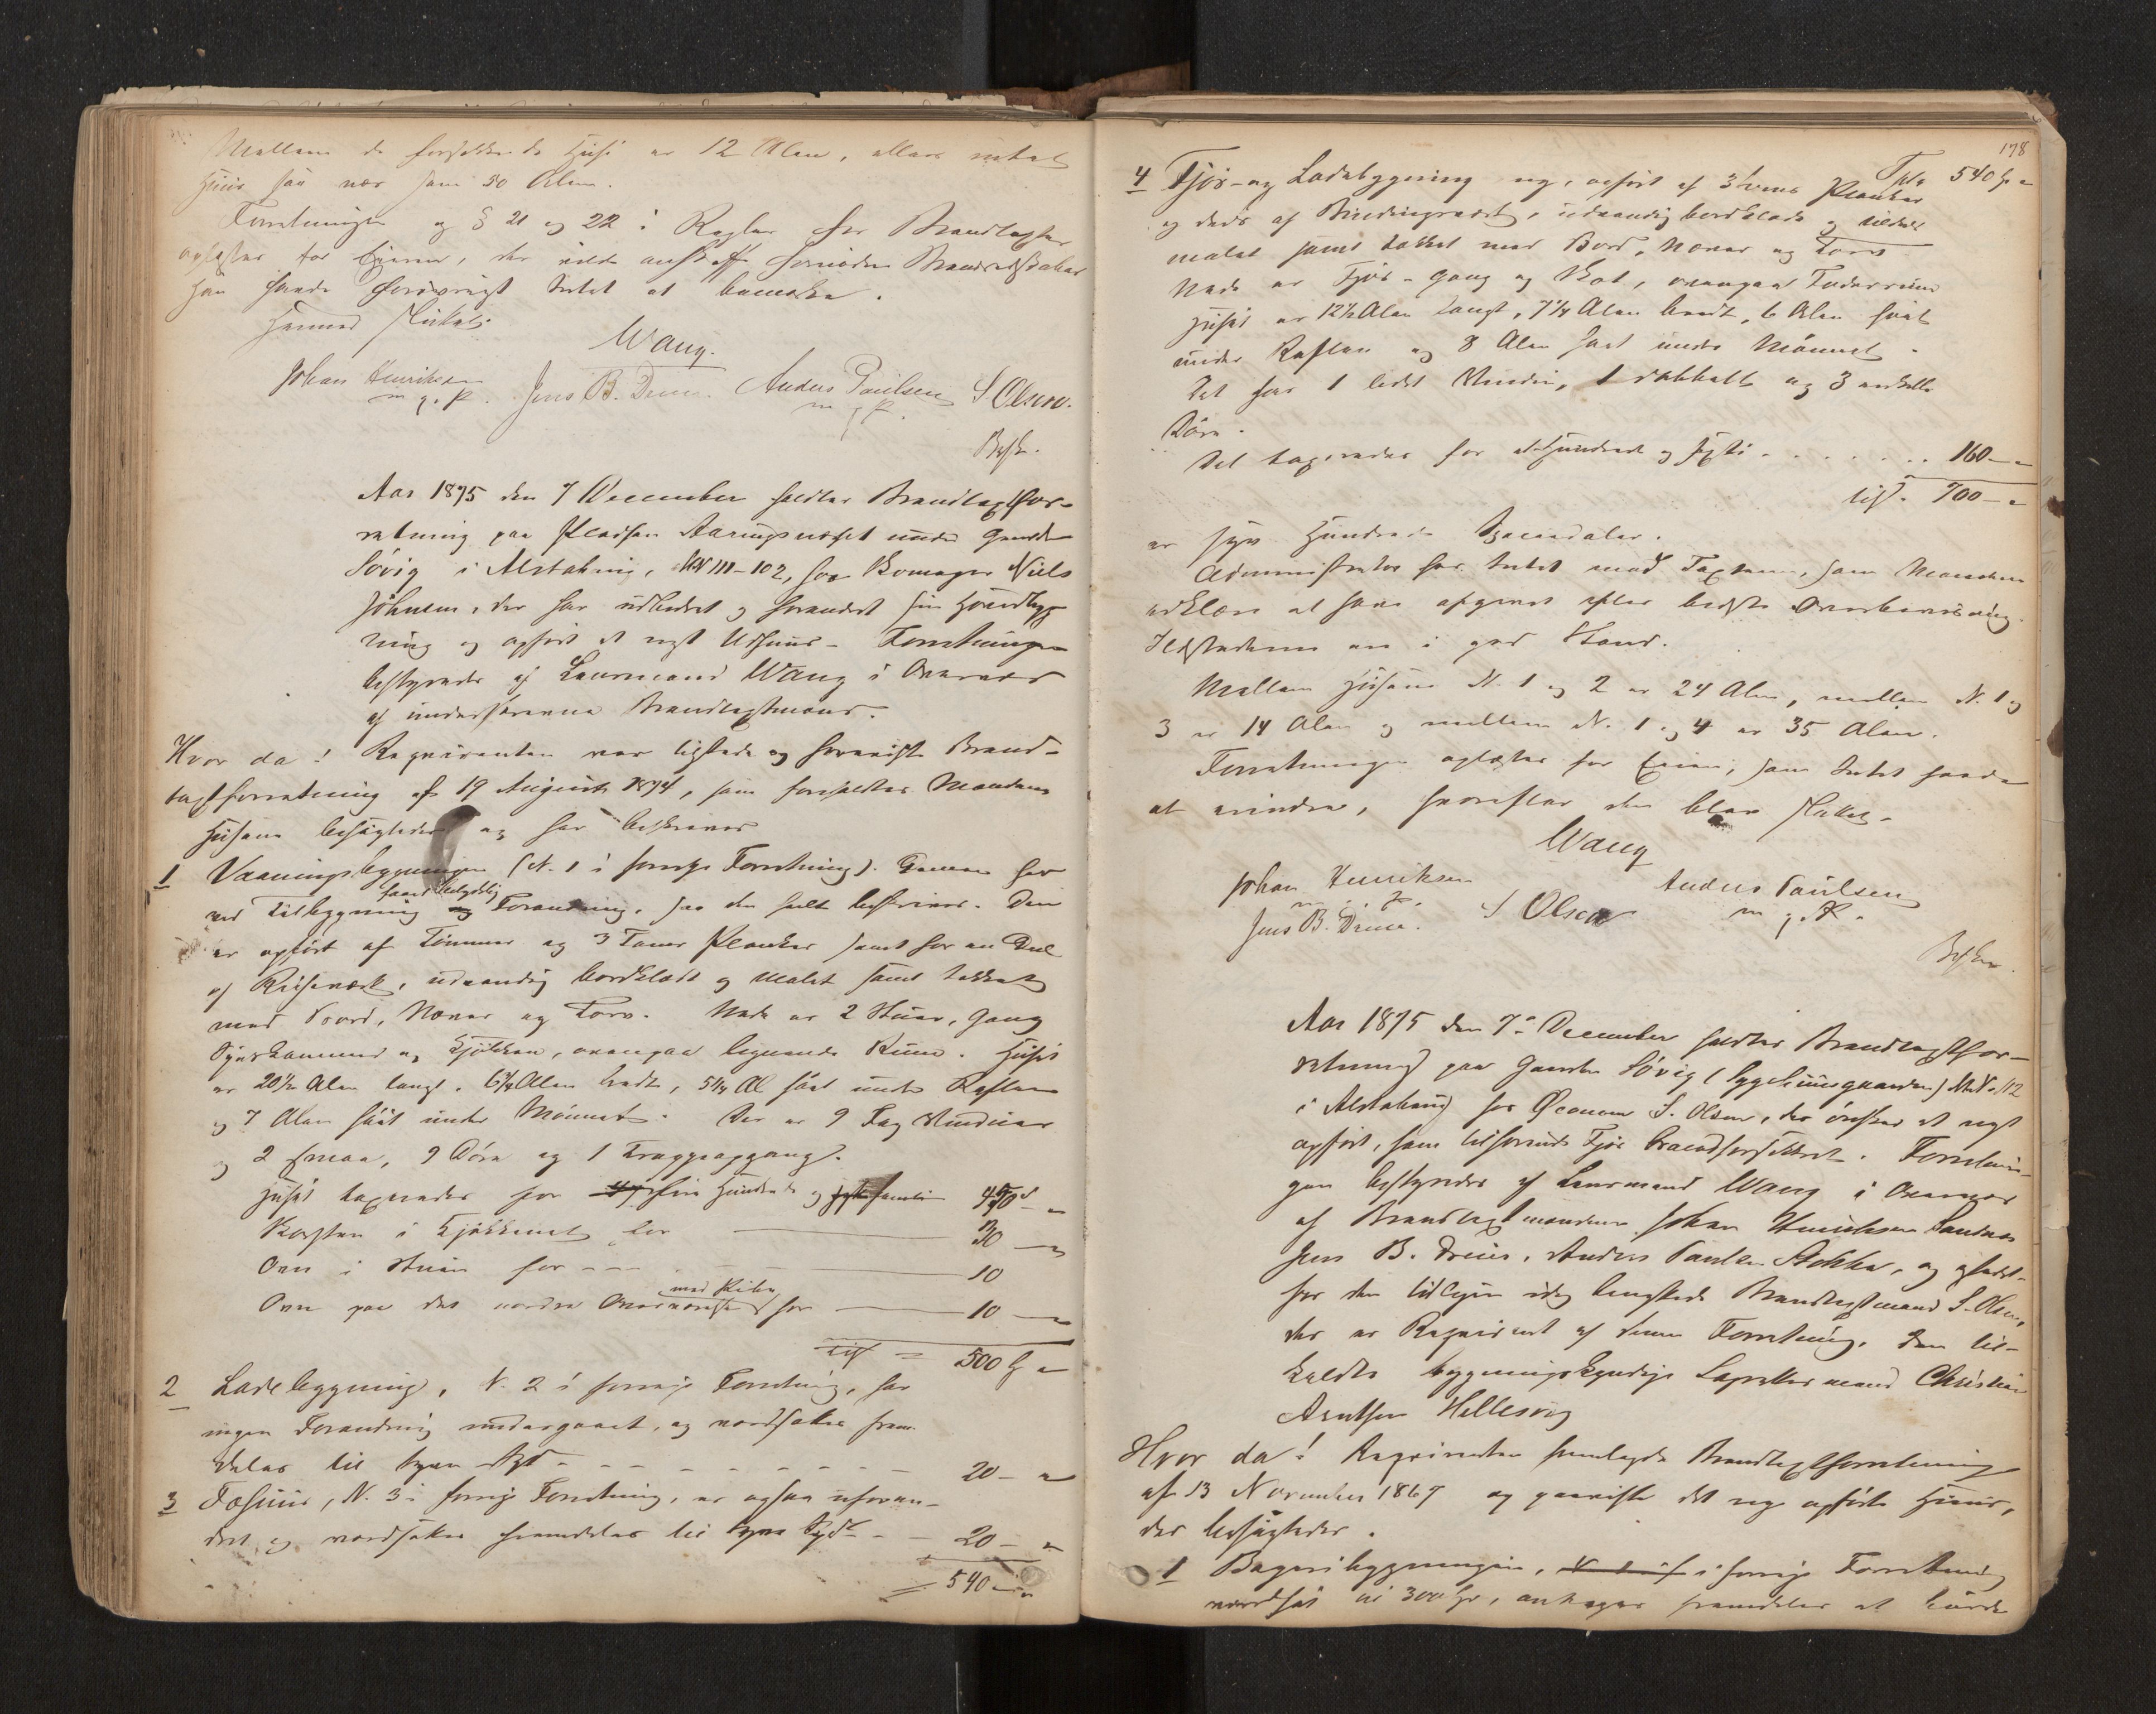 Mellem de forskellige Huse er 12 Alen, ellers intet
Huus saa nær som 50 Alen.
Forretningen og § 21 og 22 i Regler for Brandtaxter
oplæstes for Eieren, der vilde anskaffe fornødne Brandredskaber
Han havde forøvrigt Intet at bemærke.
Hermed sluttet.
Wang.
Johan Henriksen Jens B. Dreier. Anders Paulsen S Olsen.
m. p. P. m p P.
Besk.
Aar 1875 den 7 December holdtes Brandtaxtfor-
retning paa Pladsen under Gaarden
Søvig i Alstahaug, MN 111-102, for Skomager Niels
Johnsen, der har udbedret og forandret sin Hovedbyg
ning og opført et nyt Udhuus - Forretningen
bestyredes af Lensmand Wang i Overvær
af undertegnede Brandtaxtmænd.
Hvor da! Reqvirenten var tilstede og foreviste Brand-
taxtforretning af 19 August 1874, som foreholdtes Mændene
Husene besigtedes og har beskrives
1 Vaaningsbygningen (N. 1 i forrige Forretning). Denne har
samt betydelig
ved Tilbygning og Forandring, saa den helt beskrives. Den
er opført af Tømmer og 3 Toms Planker samt for en Deel
af Reisværk, udvendig bordklædt og malet samt tækket
med Bord, Næver og Torv. Nede er 2 Stuer, Gang
Spiskammer og Kjøkken, ovenpaa lignende Rum. Huset
er 20½ Alen langt, 6¾ Alen bredt, 5¼ Al høit under Raftene
og 7 Alen høit under Mønnet. Der er 9 Fag Vinduer
og 2 smaa, 9 Døre og 1 Trappeopgang.
Huset taxeredes for fire Hundrede og 450 - "
Skorsten i Kjøkkenet for 30 - "
Ovn i Stuen for 10
med Rør
Ovn paa det nordre Overværelse for 10 - "
tils = 500 Sp "
2 Ladebygning, N. 2 i forrige Forretning, har
ingen Forandring undergaaet, og værdsættes frem-
deles til tyve Spd - - - - - 20 - "
3 Fæhuus, N. 3 i forrige Forretning, er ogsaa uforan-
dret og værdsættes fremdeles til tyve Spd - 20 - "
= 540 - "
178
Tpt. 540 Sp "
4 Fjøs- og Ladebygning ny, opført af 3 Toms Planker
og deels af Bindingsværk, udvendig bordklædt og tildeels
malet samt tækket med Bord, Næver og Torv
Nede er Fjøs-Gang og Skot, ovenpaa Foderrum
Huset er 12½ Alen langt, 7¼ Alen bredt, 6 Alen høit
under Raften og 8 Alen høit under Mønnet.
Det har 1 lidet Vindu, 1 dobbelt og 3 enkelte
Døre.
Det taxeredes for et Hundrede og sexti . . . . . . 160 - "
tils. 700 - "
er syv Hundrede Speciedaler.
Administrator har Intet mod Taxten, som Mændene
erklære at have afgivet efter bedste Overbeviisning.
Ildstederne ere i god Stand.
Mellem Husene N. 1 og 2 er 24 Alen, mellem N. 1 og
3 er 14 Alen og mellem N. 1 og 4 er 35 Alen.
Forretningen oplæstes for Eieren, som Intet havde
at erindre, hvorefter den blev sluttet.
Wang
Johan Henriksen Anders Paulsen
m. p. P. S Olsen m p. P.
Jens B. Dreier.
Besk.
Aar 1875 den 7de December holdtes Brandtaxtfor-
retning paa Gaarden Søvig (Sygehuusgaarden) MN. 112
i Alstahaug for Øconom S. Olsen, der ønsker et nyt
opført, som tilforend Fjøs brandforsikkret. Forretnin-
gen bestyredes af Lensmand Wang i Overvær
af Brandtaxtmændene Johan Henriksen Sandnes
Jens B. Dreier, Anders Paulsen Stokka, og istedet-
for den tidligere edfæstede Brandtaxtmand S. Olsen,
der er Reqvirent af denne Forretning, den til-
kaldte bygningskyndige Christian
Arntsen Hellesvig
Hvor da! Reqvirenten fremlagde Brandtaxtforretning
af 13 November 1867 og paaviste det nye opførte Huus,
der besigtedes.
1 Bageribygningen, i forrige Forretning
værdsat til 300 Sp, antages fremdeles at burde